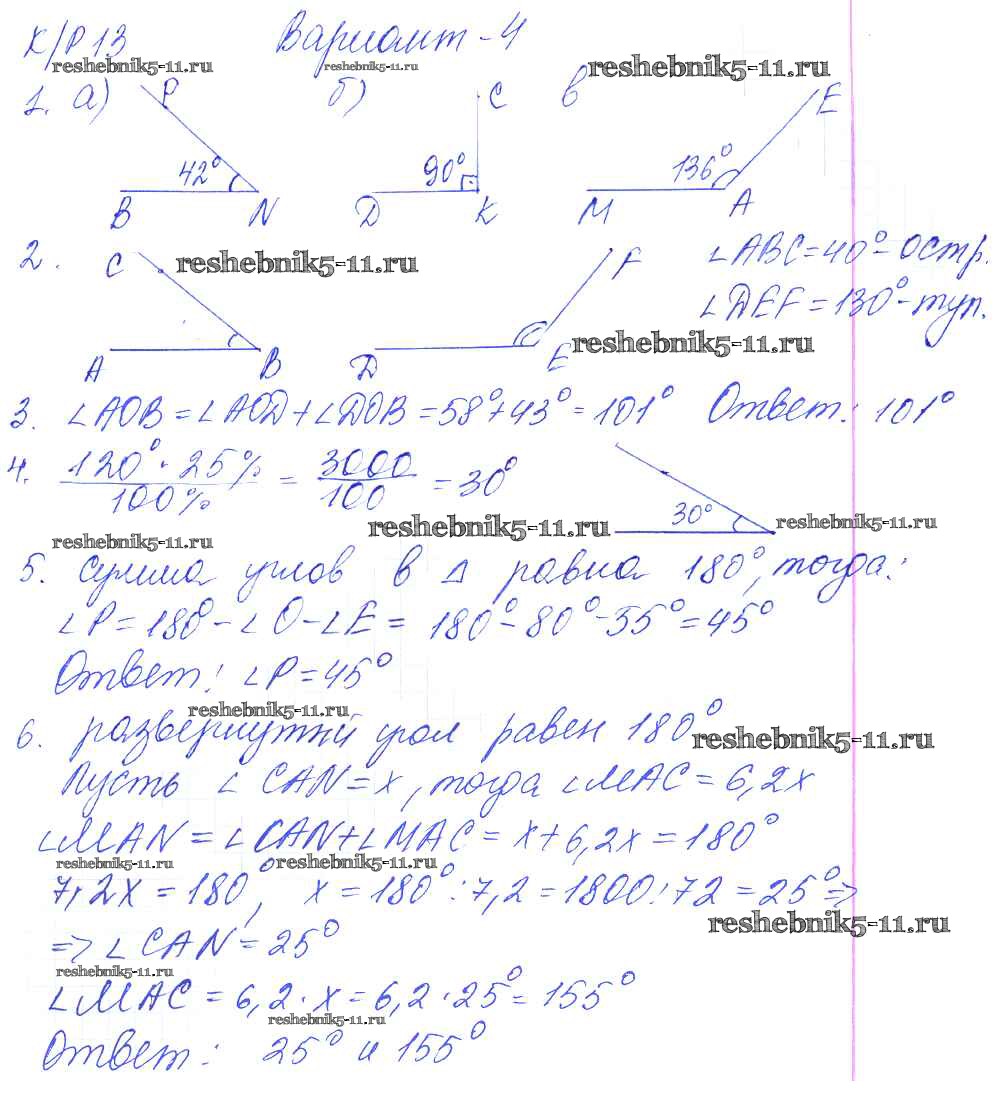 К/Р 13 Вариант - 4
reshebnik5-11.ru reshebnik5-11.ru reshebnik5-11.ru
1. а) P б) C в E
42° 90° 136°
B N D K M A
2. C reshebnik5-11.ru F ∠ABC = 40° - остр.
∠DEF = 130° - туп.
A B D E reshebnik5-11.ru
3. ∠AOB = ∠AOD + ∠DOB = 58° + 43° = 101° Ответ: 101°
4. 120° · 25% / 100% = 3000 / 100 = 30°
30°
reshebnik5-11.ru reshebnik5-11.ru
reshebnik5-11.ru
5. сумма углов в Δ равна 180°, тогда:
∠P = 180° - ∠O - ∠E = 180° - 80° - 55° = 45°
Ответ: ∠P = 45°
reshebnik5-11.ru
6. развернутый угол равен 180°
reshebnik5-11.ru
Пусть ∠CAN = x, тогда ∠MAC = 6,2x
∠MAN = ∠CAN + ∠MAC = x + 6,2x = 180°
reshebnik5-11.ru reshebnik5-11.ru
7,2x = 180°, x = 180° : 7,2 = 1800 : 72 = 25° =>
reshebnik5-11.ru
=> ∠CAN = 25°
reshebnik5-11.ru
∠MAC = 6,2 · x = 6,2 · 25° = 155°
reshebnik5-11.ru
Ответ: 25° и 155°